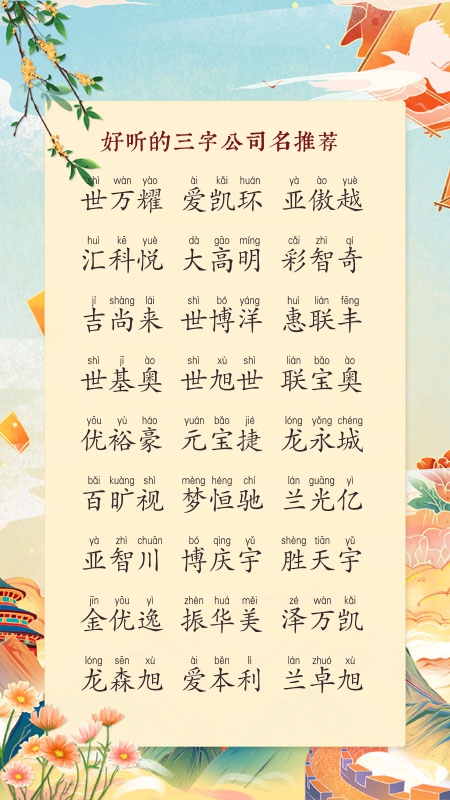 好听的三字公司名推荐
shì wàn yào ài kǎi huán yà ào yuè
世万耀 爱凯环 亚傲越
huì kē yuè dà gāo míng cǎi zhì qí
汇科悦 大高明 彩智奇
jí shàng lái shì bó yáng huì lián fēng
吉尚来 世博洋 惠联丰
shì jī ào shì xù shì lián bǎo ào
世基奥 世旭世 联宝奥
yōu yù háo yuán bǎo jié lóng yǒng chéng
优裕豪 元宝捷 龙永城
bǎi kuàng shì mèng héng chí lán guāng yì
百旷视 梦恒驰 兰光亿
yà zhì chuān bó qìng yǔ shèng tiān yǔ
亚智川 博庆宇 胜天宇
jīn yōu yì zhèn huá měi zé wàn kǎi
金优逸 振华美 泽万凯
lóng sēn xù ài běn lì lán zhuó xù
龙森旭 爱本利 兰卓旭